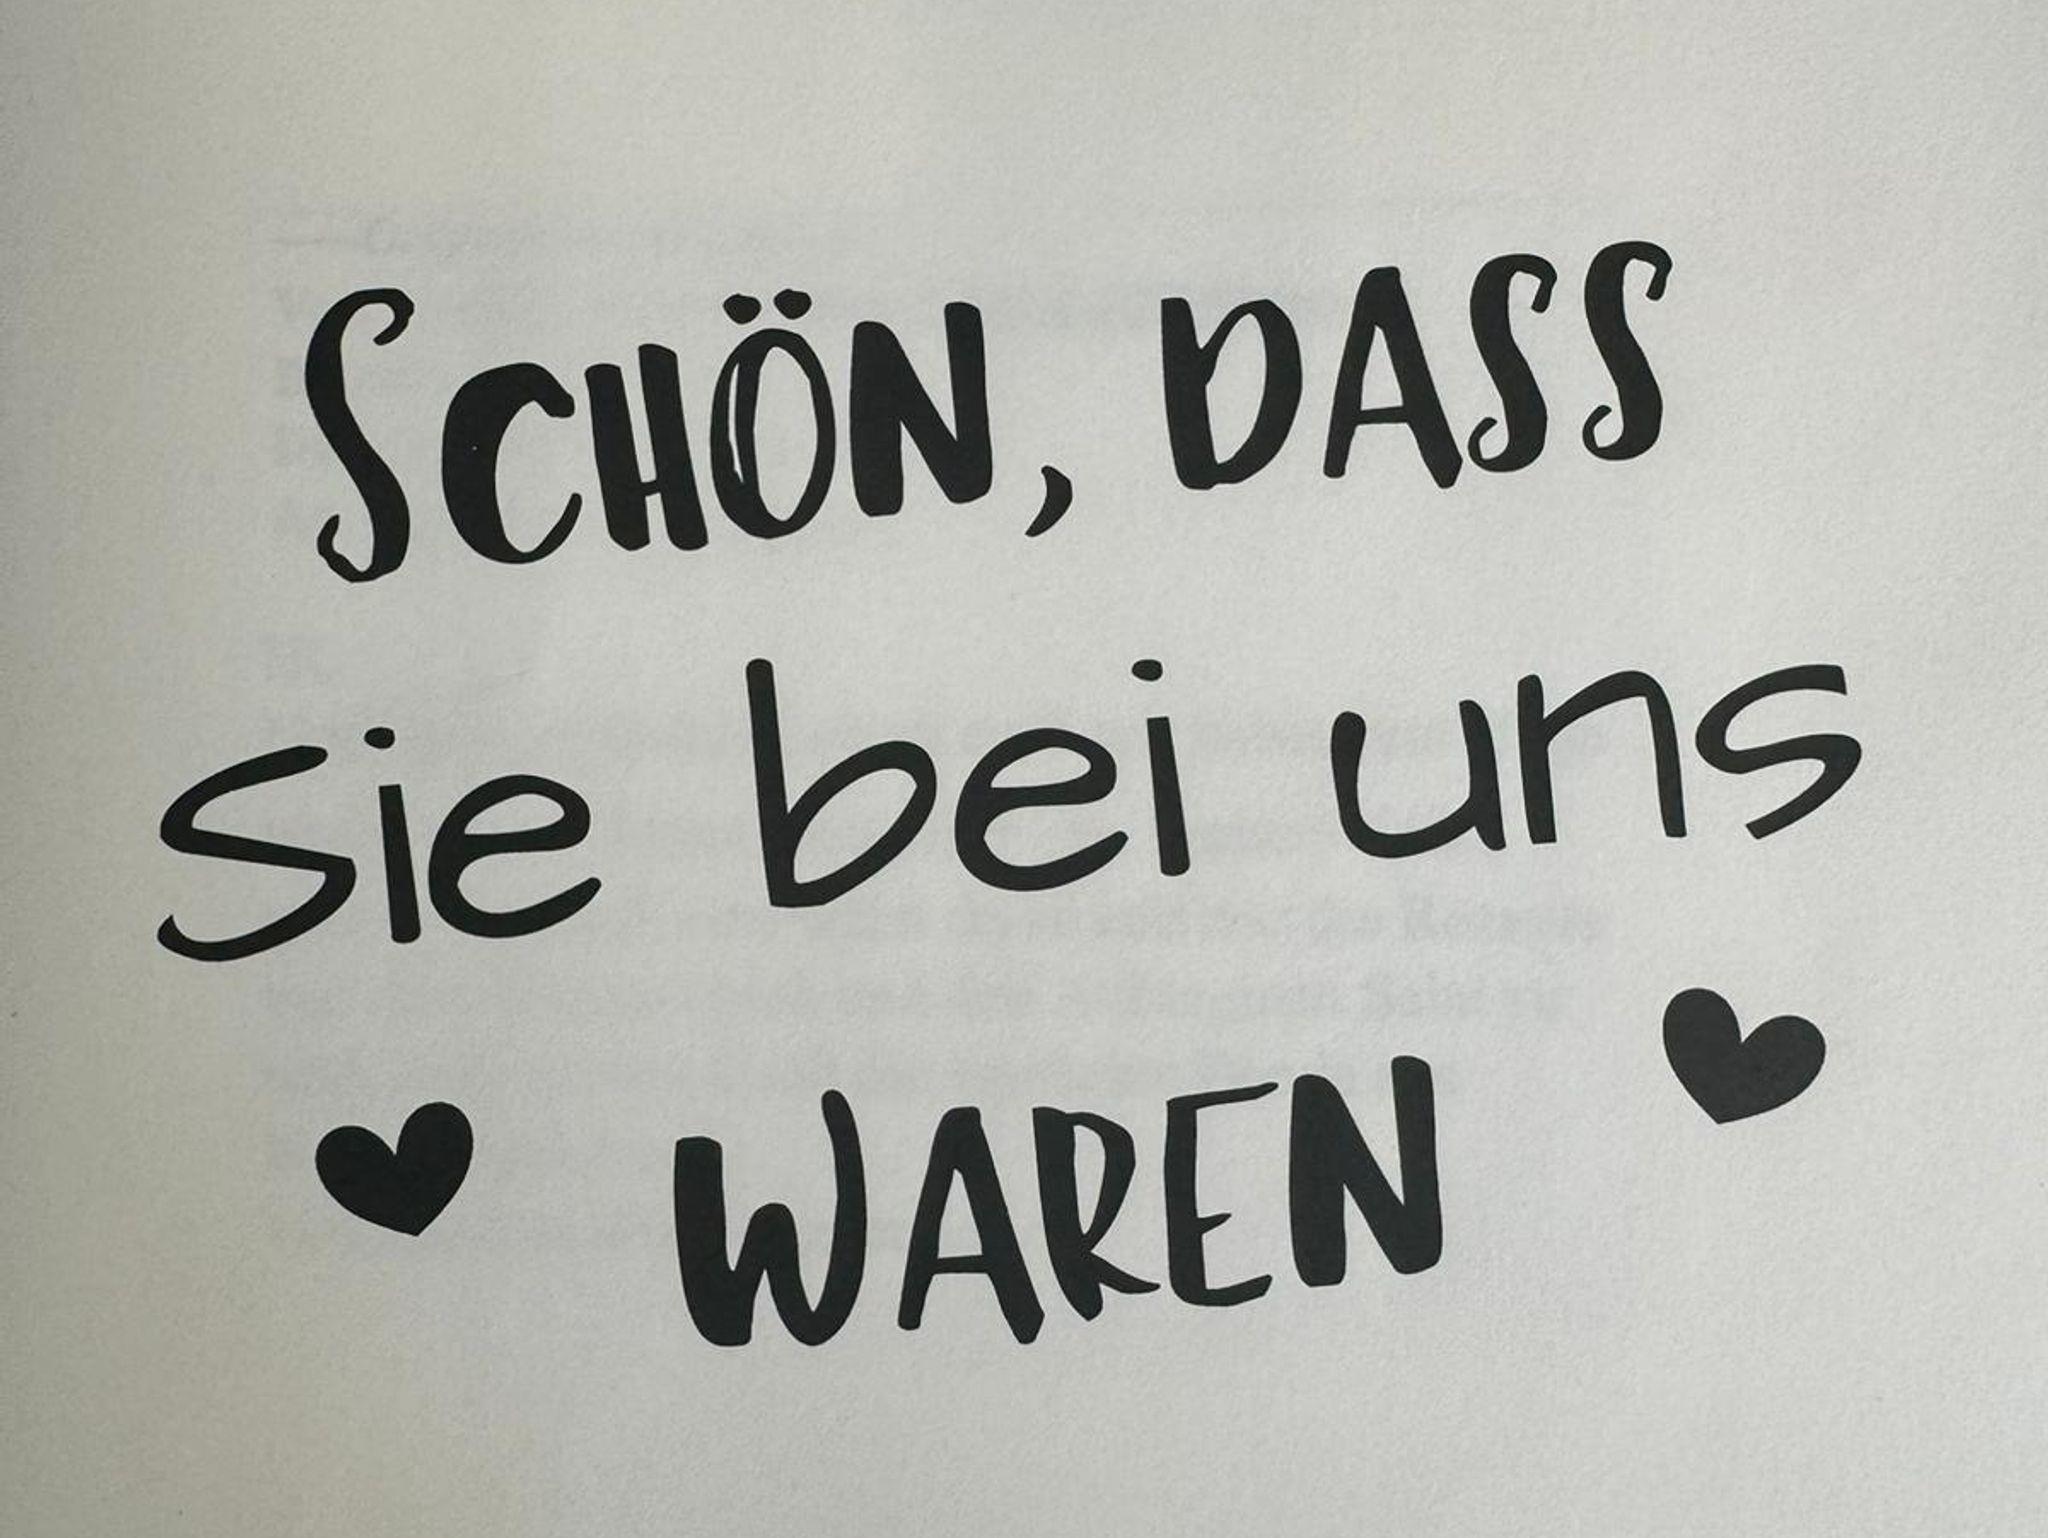 SCHÖN, DASS
Sie bei uns
WAREN